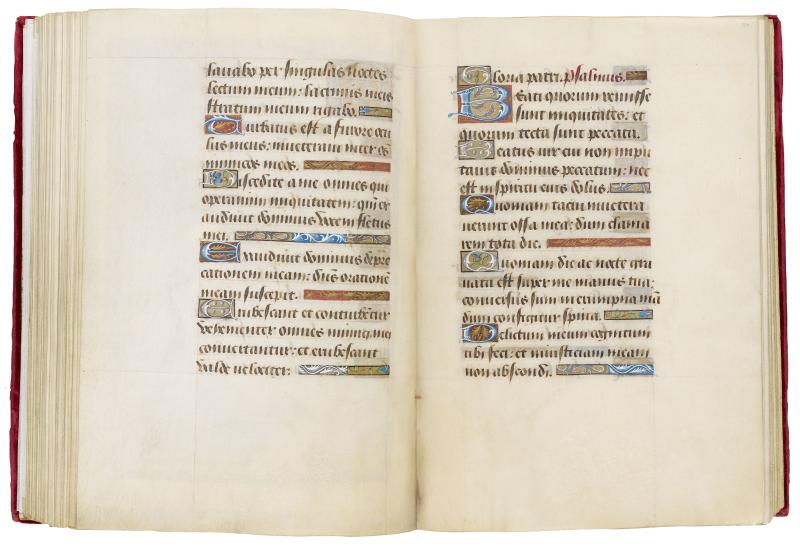 lauabo per singulas noctes
lectum meum: lacrimis meis
stratum meum rigabo.
Turbatus est a furore ocu
lus meus: inueteraui inter oēs
inimicos meos.
Discedite a me omnes qui
operamini iniquitatem: qm̄ ex
audiuit dominus vocem fletus
mei.
Exaudiuit dominus depre
cationem meam: dn̄s orationē
meam suscepit.
Erubescant et conturbētur
vehementer omnes inimici mei
conuertantur: et erubescant
valde velociter.
Gloria patri. Psalmus.
Beati quorum remisse
sunt iniquitates: et
quorum tecta sunt peccata.
Beatus vir cui non impu
tauit dominus peccatum: nec
est in spiritu eius dolus.
Quoniam tacui inuetera
uerunt ossa mea: dum clama
rem tota die.
Quoniam die ac nocte gra
uata est super me manus tua:
conuersus sum in erumpna mā
dum configitur spina.
Delictum meum cognitum
tibi feci: et iniusticiam meam
non abscondi.